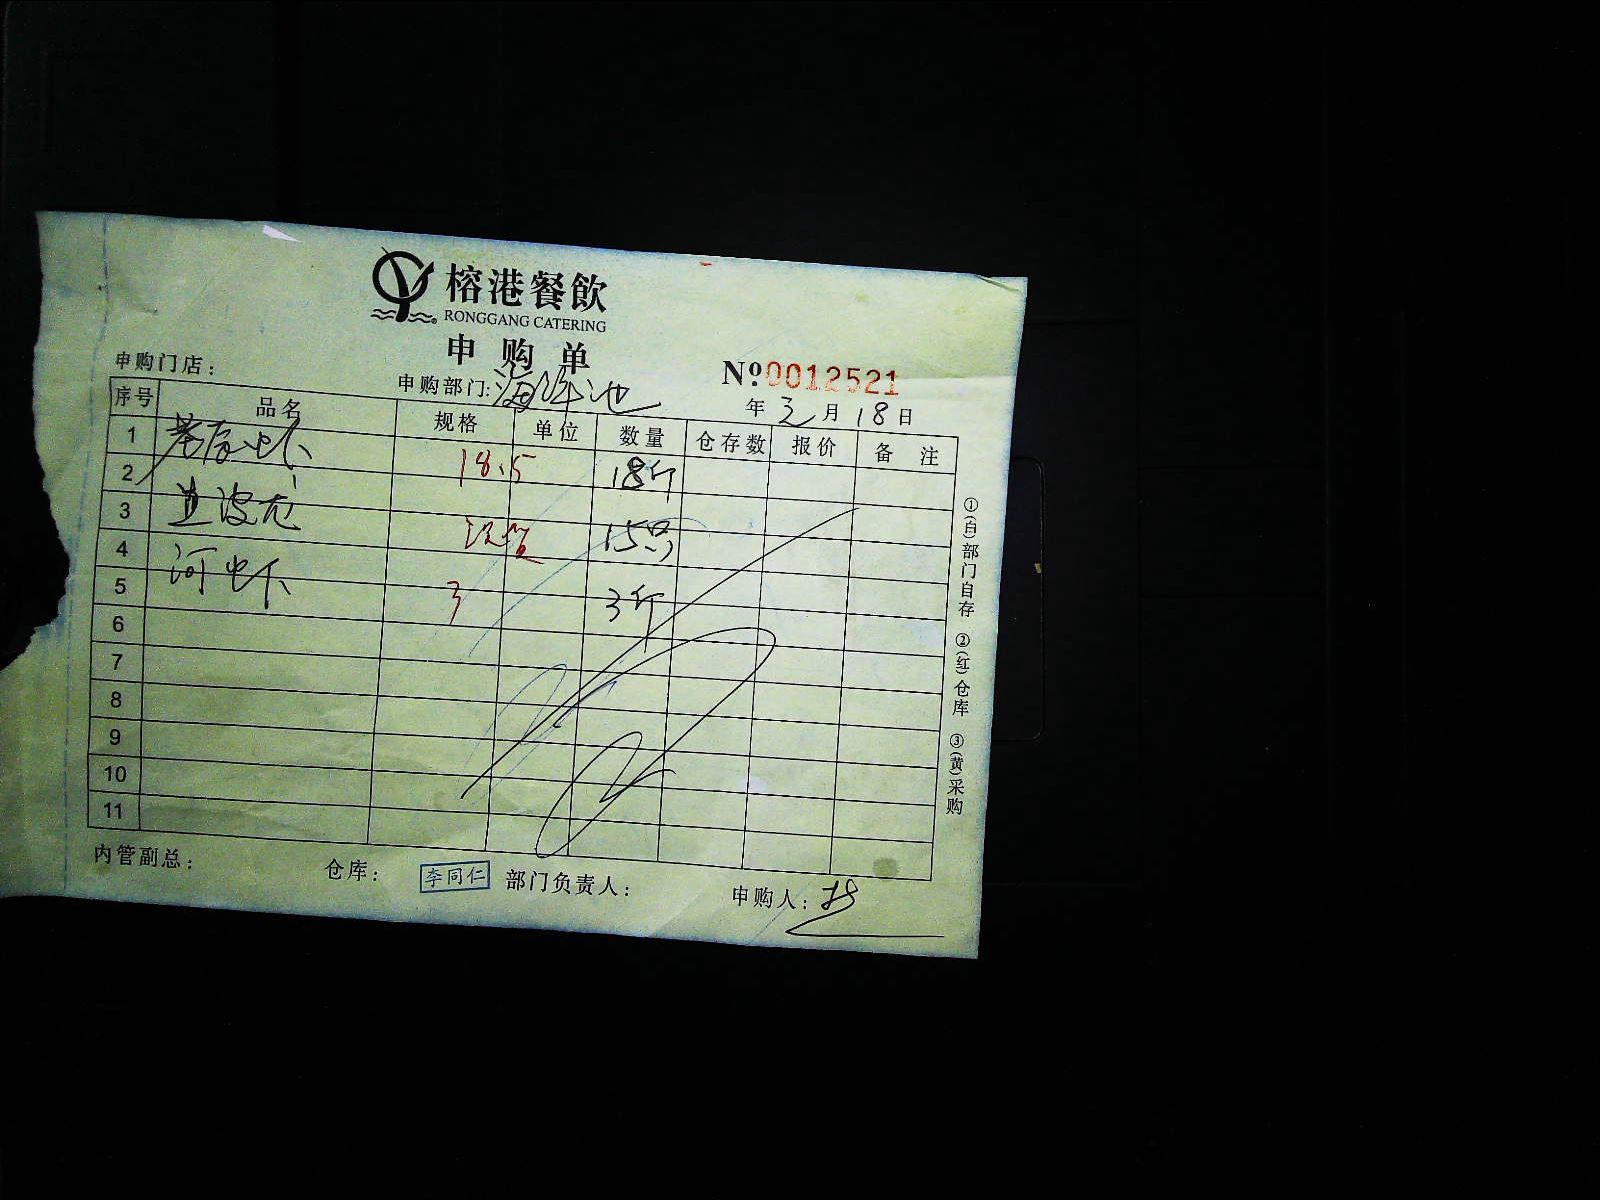 榕港餐飲
RONGGANG CATERING
申购单
申购门店：
申购部门: 海鲜池
Nº0012521
年 3 月 18 日
序号 品名 规格 单位 数量 仓存数 报价 备 注
1 基尾虾 18.5 18斤
2
3 波龙 15只
4
5 河虾 3 3斤
6
7
8
9
10
11
①(白)部门自存 ②(红)仓库 ③(黄)采购
内管副总： 仓库： 李同仁 部门负责人： 申购人：